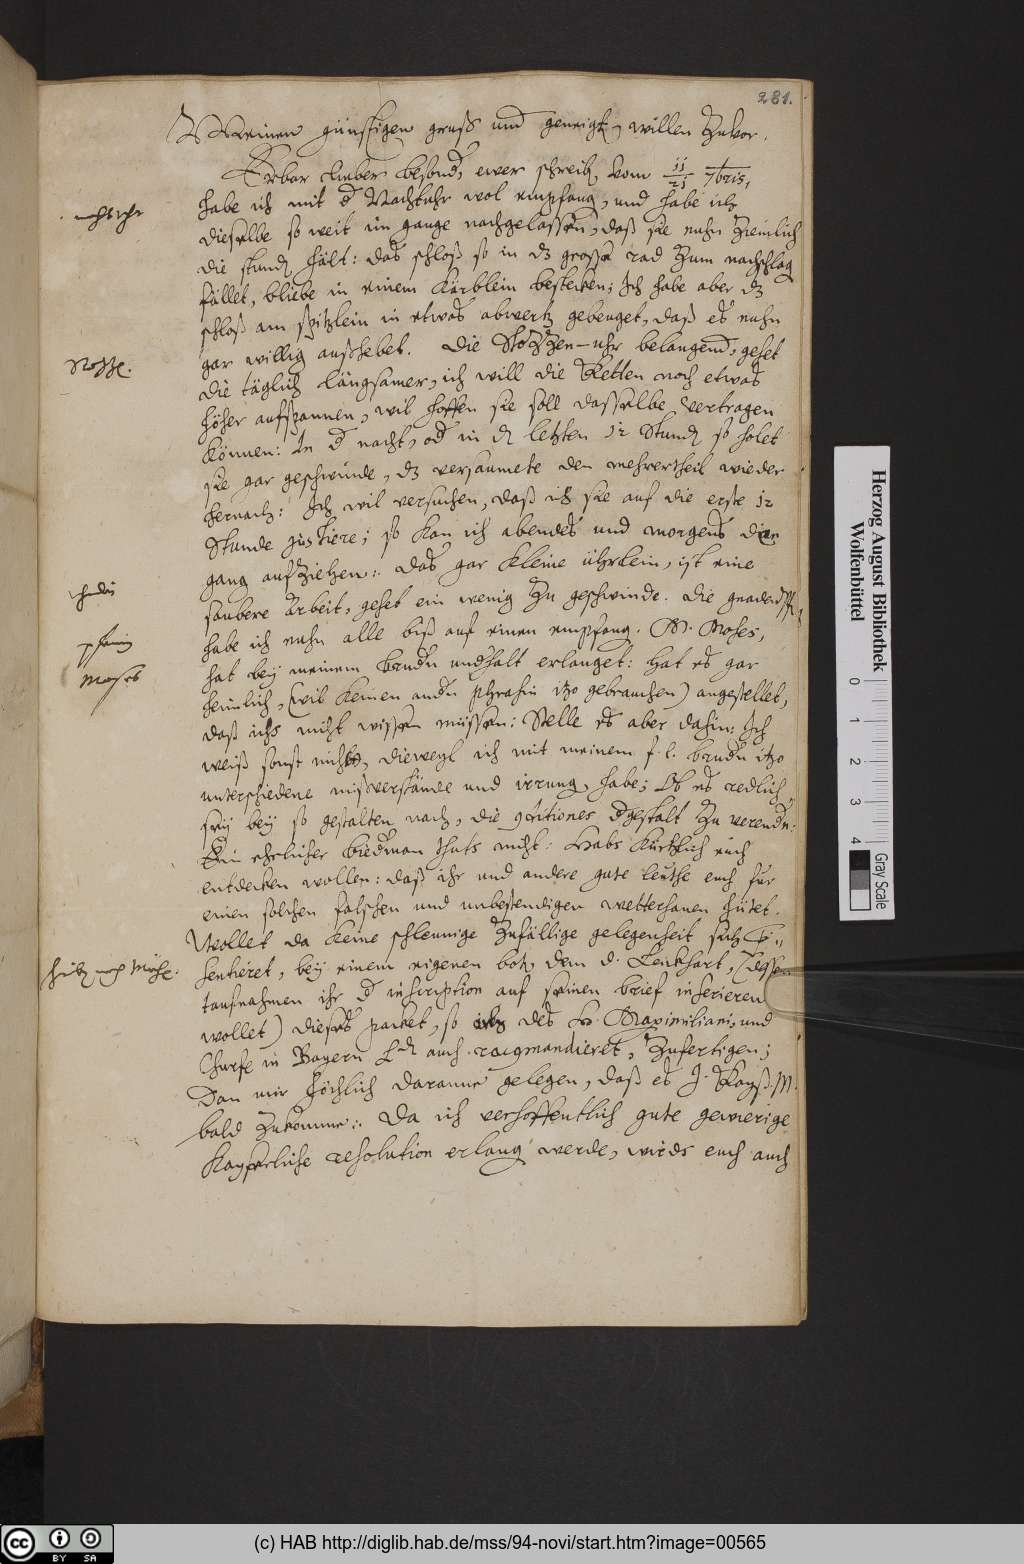 281.
Meinen günstigen gruß und geneigt. willen Zuvor.
Erbar lieber besond, ewer schreib. vom 11/21 7bris,
habe ich mit d Nachtuhr wol empfang, und habe ich
nachtuhr
dieselbe so weit im gange nachgelassen, daß sie nuhn Zimlich
die stund hält: das schloß so in dz große rad Zum nachschlag
fället, bliebe in einem Kärblein bestecken; Ich habe aber dz
schloß am spitzlein in etwas abwertz gebeuget, daß es nuhn
gar willig außhebet. Die StoZZen-uhr belangend, gehet
StoZZe.
die täglich längsamer, ich will die Ketten noch etwas
höher aufspannen, wil hoffen sie soll dasselbe vertragen
Können: In d nacht, od in d letzten 12 Stund so holet
sie gar geschwinde, dz versaumete den mehrertheil wieder
hernach: Ich wil versuchen, daß ich sie auf die erste 12
Stunde justiere; so Kan ich abendes und morgens den
gang aufziehen: das gar Kleine ührlein, ist eine
saubere Arbeit, gehet ein wenig Zu geschwinde. Die
habe ich nuhn alle biß auf einen empfang. M. Moses,
Moses
hat bey meinem brudn undhalt erlanget: Hat es gar
heimlich, (wil Keinen andn phrasin itzo gebrauchen) angestellet,
daß ichs nicht wissen müssen: Stelle es aber dahin: Ich
weiß sonst nicht, dieweyl ich mit meinem f. l. brudn itzo
unterschiedene mißverstände und irrung habe; Ob es redlich
sey bey so gestalten nach, die conditiones dgestalt Zu verendn:
Ein ehrlicher biedman thuts nicht: Habs Kürtzlich euch
entdecken wollen: daß ihr und andere gute leuthe euch für
einen solchen falschen und unbestendigen wetterhanen hütet.
Wollet da Keine schleunige Zufällige gelegenheit sich
sentieret, bey einem eigenen bot. dem d. Leuckhart, (dessen
taufnahmen ihr d inscription auf seinen brief inserieren
wollet) dieses packet, so des H. Maximiliani, und
Churf. in Bayern Ld. auch Zufertigen;
Dan mir höchlich daranne gelegen, daß es J. Kayß. M.
bald Zukomme: Da ich verhoffentlich gute gewierige
Kayserliche resolution erlang werde, wirds euch auch
Herzog August Bibliothek
Wolfenbüttel
0 1 2 3 4
Gray Scale
cc BY SA
(c) HAB http://diglib.hab.de/mss/94-novi/start.htm?image=00565